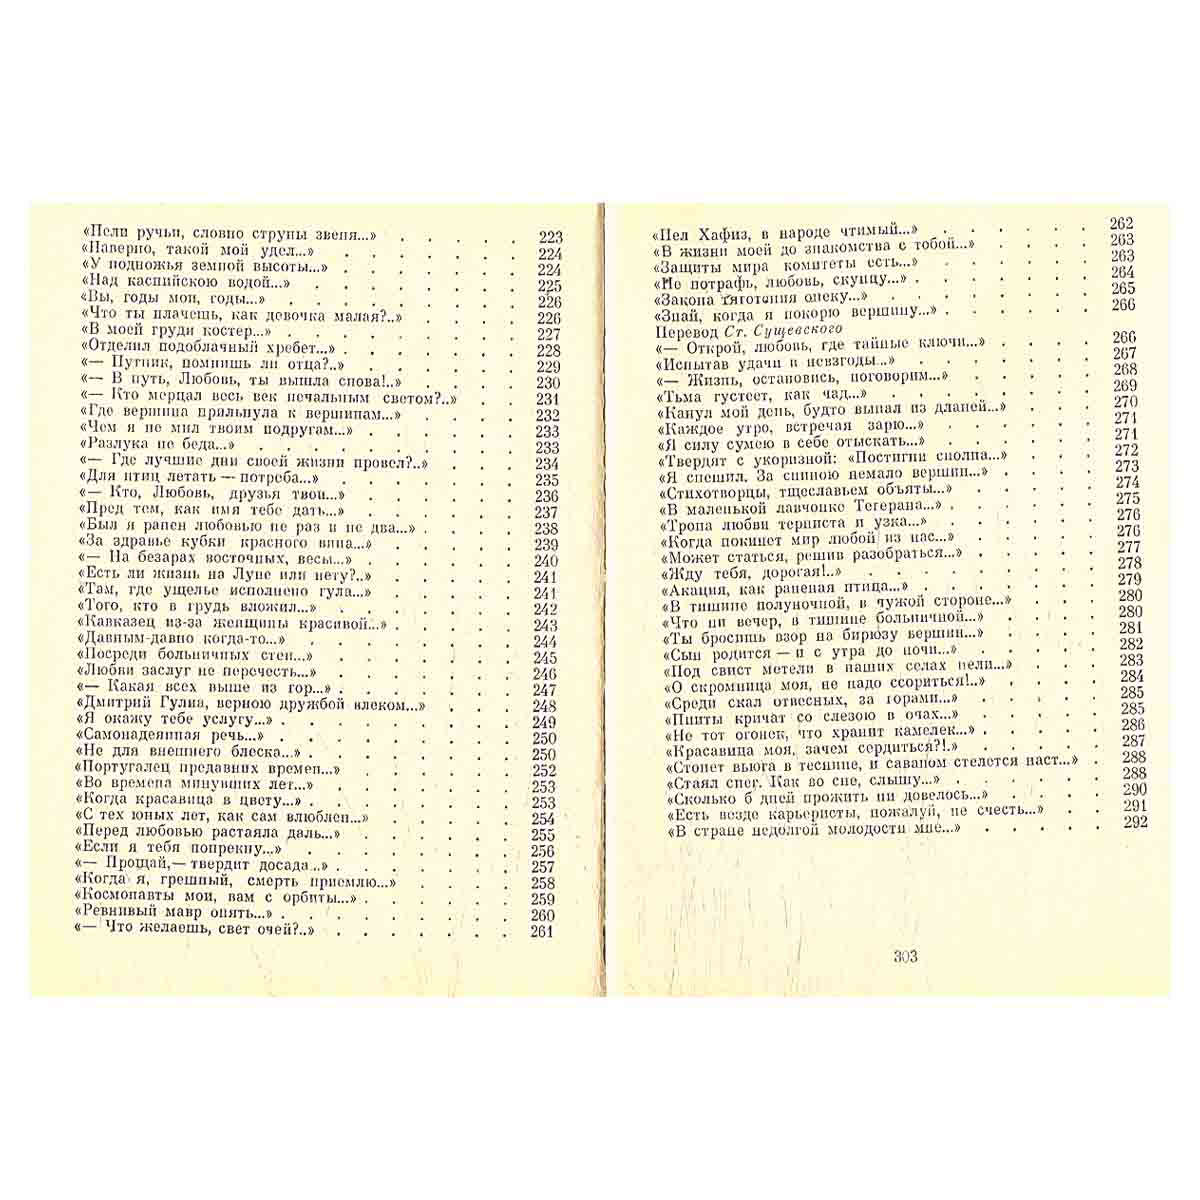 «Пели ручьи, словно струны звеня...» . . . . . 223
«Наверно, такой мой удел...» . . . . . . . 224
«У подножья земной высоты...» . . . . . . 224
«Над каспийскою водой...» . . . . . . . 225
«Вы, годы мои, годы...» . . . . . . . . 226
«Что ты плачешь, как девочка малая?..» . . . . 226
«В моей груди костер...» . . . . . . . . 227
«Отделил подоблачный хребет...» . . . . . . 228
«— Путник, помнишь ли отца?..» . . . . . . 229
«— В путь, Любовь, ты вышла снова!..» . . . . 230
«— Кто мерцал весь век печальным светом?..» . . 231
«Где вершина прильнула к вершинам...» . . . . 232
«Чем я не мил твоим подругам...» . . . . . . 233
«Разлука не беда...» . . . . . . . . . 233
«— Где лучшие дни своей жизни провел?..» . . . 234
«Для птиц летать — потреба...» . . . . . . 235
«— Кто, Любовь, друзья твои...» . . . . . . 236
«Пред тем, как имя тебе дать...» . . . . . . 237
«Был я ранен любовью не раз и не два...» . . . . 238
«За здравье кубки красного вина...» . . . . . 239
«— На безарах восточных, весы...» . . . . . . 240
«Есть ли жизнь на Луне или нету?..» . . . . . 241
«Там, где ущелье исполнено гула...» . . . . . 241
«Того, кто в грудь вложил...» . . . . . . . 242
«Кавказец из-за женщины красивой...» . . . . . 243
«Давным-давно когда-то...» . . . . . . . 244
«Посреди больничных стен...» . . . . . . 245
«Любви заслуг не перечесть...» . . . . . . 246
«— Какая всех выше из гор...» . . . . . . . 247
«Дмитрий Гулиа, верною дружбой влеком...» . . . 248
«Я окажу тебе услугу...» . . . . . . . . 249
«Самонадеянная речь...» . . . . . . . . 250
«Не для внешнего блеска...» . . . . . . . 250
«Португалец предавних времен...» . . . . . 252
«Во времена минувших лет...» . . . . . . 253
«Когда красавица в цвету...» . . . . . . . 253
«С тех юных лет, как сам влюблен...» . . . . . 254
«Перед любовью растаяла даль...» . . . . . 255
«Если я тебя попрекну...» . . . . . . . 256
«— Прощай,— твердит досада...» . . . . . . 257
«Когда я, грешный, смерть приемлю...» . . . . 258
«Космонавты мои, вам с орбиты...» . . . . . . 259
«Ревнивый мавр опять...» . . . . . . . . 260
«— Что желаешь, свет очей?..» . . . . . . 261
«Пел Хафиз, в народе чтимый...» . . . . . . 262
«В жизни моей до знакомства с тобой...» . . . . 263
«Защиты мира комитеты есть...» . . . . . . 263
«Не потрафь, любовь, скупцу...» . . . . . . 264
«Закона тяготения опеку...» . . . . . . . 265
«Знай, когда я покорю вершину...» . . . . . . 266
Перевод Ст. Сущевского
«— Открой, любовь, где тайные ключи...» . . . . 266
«Испытав удачи и невзгоды...» . . . . . . 267
«— Жизнь, остановись, поговорим...» . . . . . 268
«Тьма густеет, как чад...» . . . . . . . 269
«Канул мой день, будто выпал из дланей...» . . . 270
«Каждое утро, встречая зарю...» . . . . . . 271
«Я силу сумею в себе отыскать...» . . . . . 271
«Твердят с укоризной: «Постигни сполна...» . . . 272
«Я спешил. За спиною немало вершин...» . . . . 273
«Стихотворцы, тщеславьем объяты...» . . . . . 274
«В маленькой лавчонке Тегерана...» . . . . . 275
«Тропа любви терниста и узка...» . . . . . . 276
«Когда покинет мир любой из нас...» . . . . . 276
«Может статься, решив разобраться...» . . . . . 277
«Жду тебя, дорогая!..» . . . . . . . . 278
«Акация, как раненая птица...» . . . . . . 279
«В тишине полуночной, в чужой стороне...» . . . 280
«Что ни вечер, в тишине больничной...» . . . . 280
«Ты бросишь взор на бирюзу вершин...» . . . . 281
«Сын родится — и с утра до ночи...» . . . . . 282
«Под свист метели в наших селах пели...» . . . 283
«О скромница моя, не надо ссориться!..» . . . . 284
«Среди скал отвесных, за горами...» . . . . . 285
«Пииты кричат со слезою в очах...» . . . . . 285
«Не тот огонек, что хранит камелек...» . . . . . 286
«Красавица моя, зачем сердиться?!.» . . . . . 287
«Стонет вьюга в теснине, и саваном стелется наст...» . 288
«Стаял снег. Как во сне, слышу...» . . . . . 288
«Сколько б дней прожить ни довелось...» . . . . 290
«Есть везде карьеристы, пожалуй, не счесть...» . . . 291
«В стране недолгой молодости мне...» . . . . . 292
303